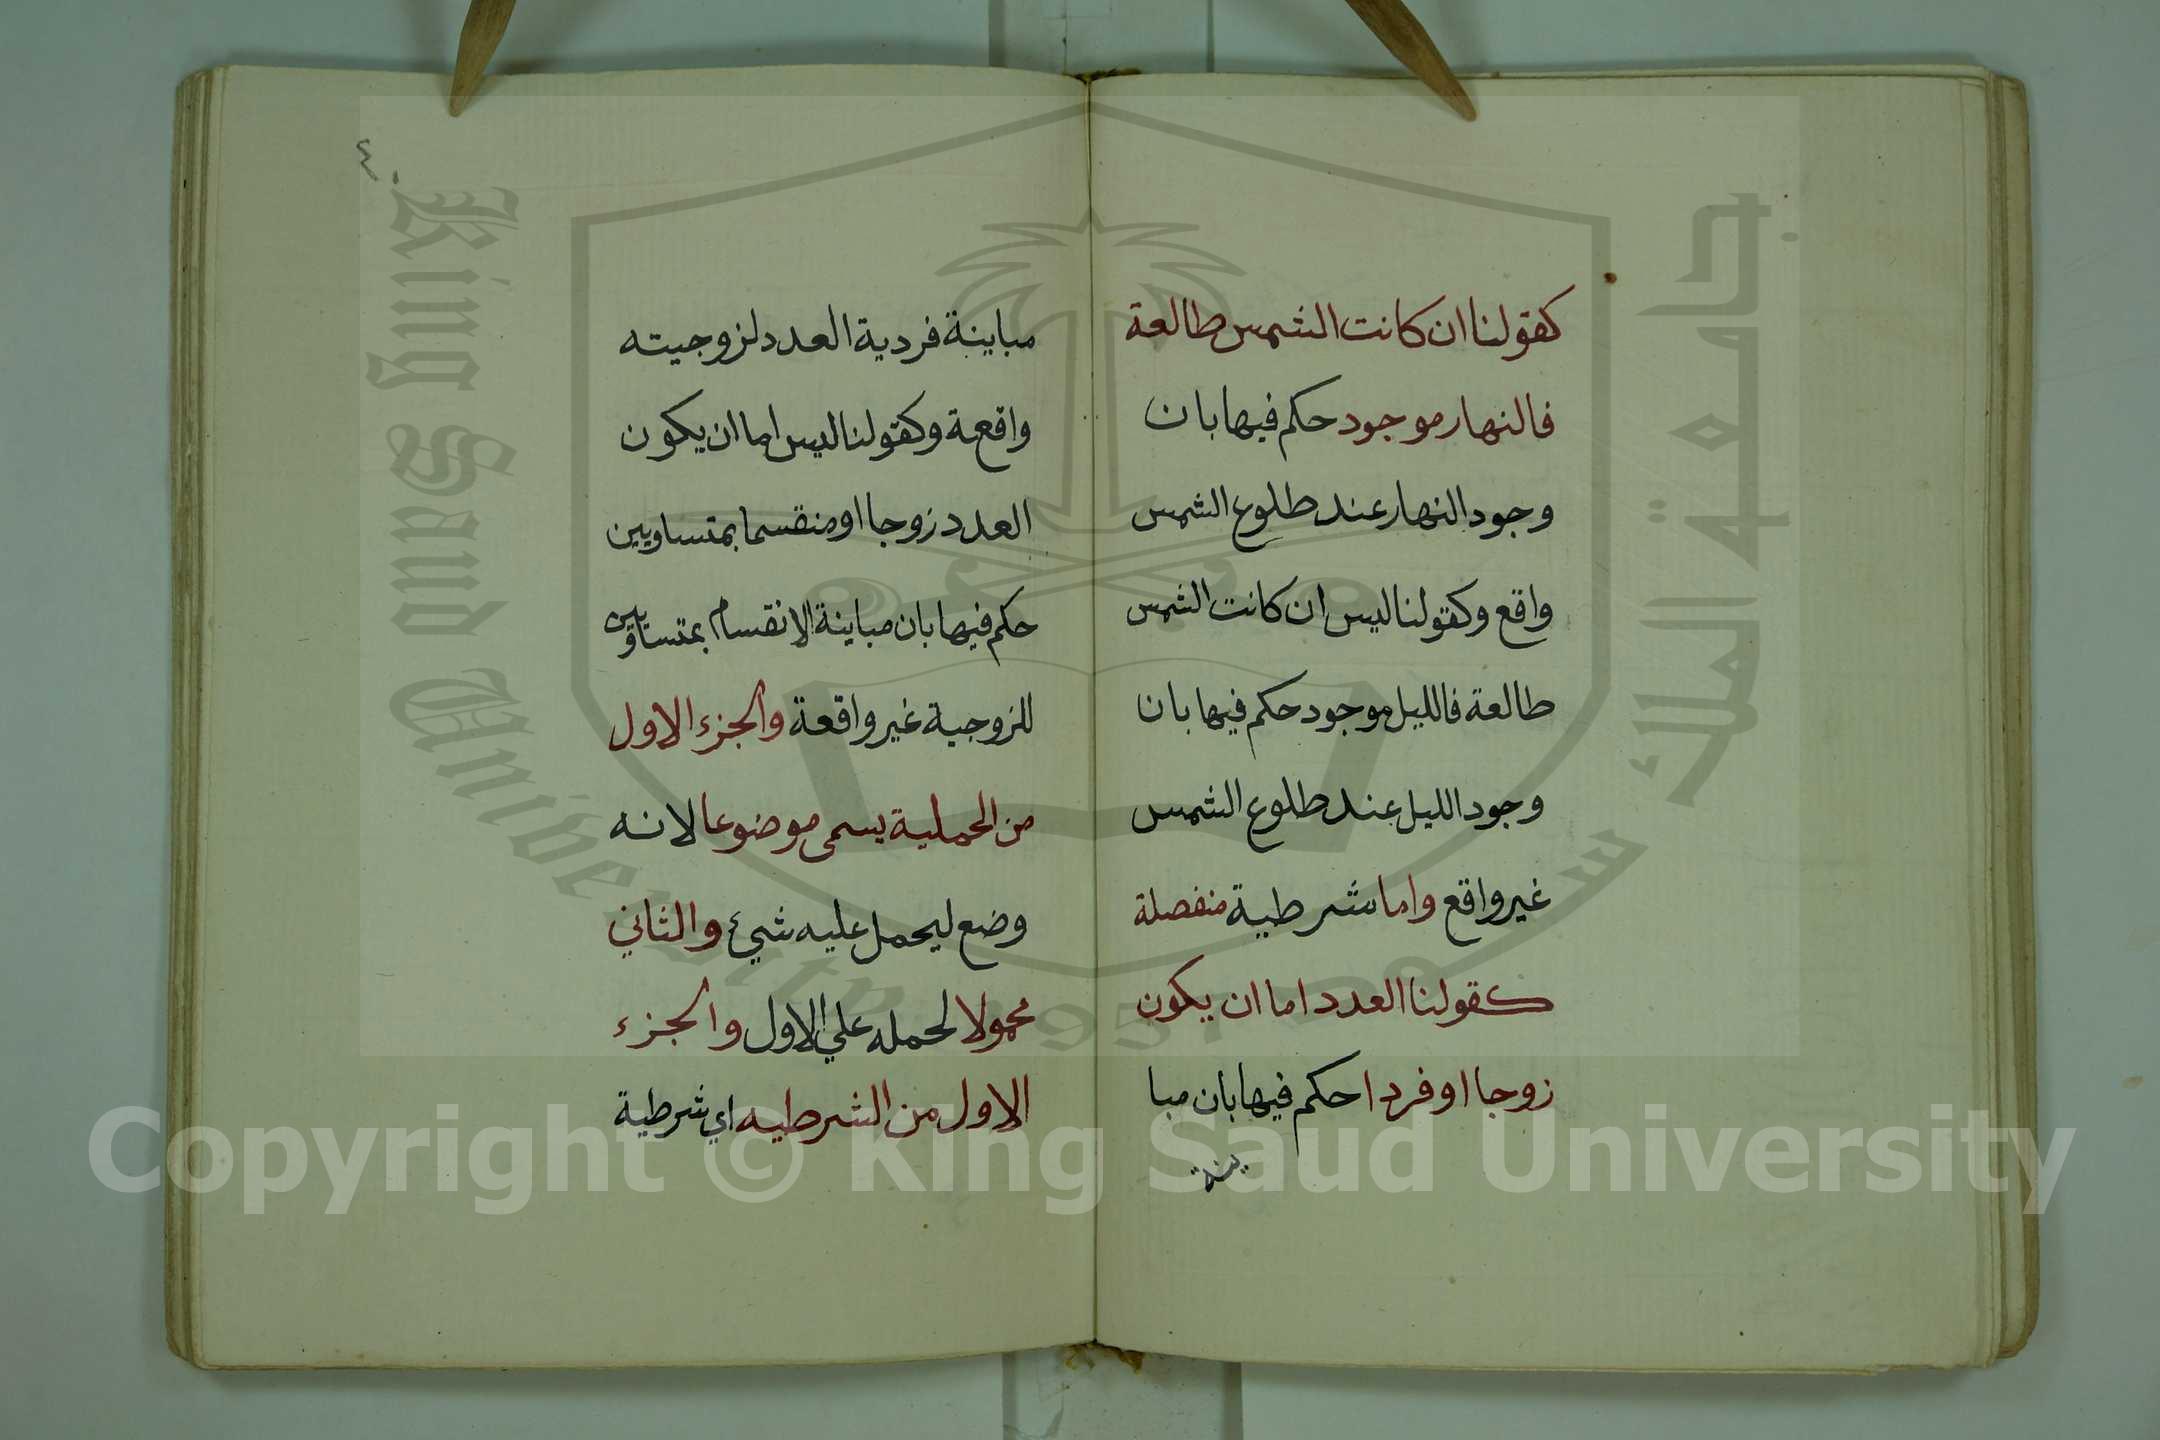 كقولنا ان كانت الشمس طالعة
فالنهار موجود حكم فيها بان
وجود النهار عند طلوع الشمس
واقع وكقولنا ليس ان كانت الشمس
طالعة فالليل موجود حكم فيها بان
وجود الليل عند طلوع الشمس
غير واقع واما شرطية منفصلة
كقولنا العدد اما ان يكون
زوجا او فردا حكم فيها بان مبا
ينة
٤٠
مباينة فردية العدد لزوجيته
واقعة وكقولنا ليس اما ان يكون
العدد زوجا او منقسما بمتساويين
حكم فيها بان مباينة الانقسام بمتساويين
للزوجية غير واقعة والجزء الاول
من الحملية يسمى موضوعا لانه
وضع ليحمل عليه شيء والثاني
محمولا لحمله علي الاول والجزء
الاول من الشرطيه اي شرطية
جامعة الملك سعود
King Saud University
1957
Copyright © King Saud University